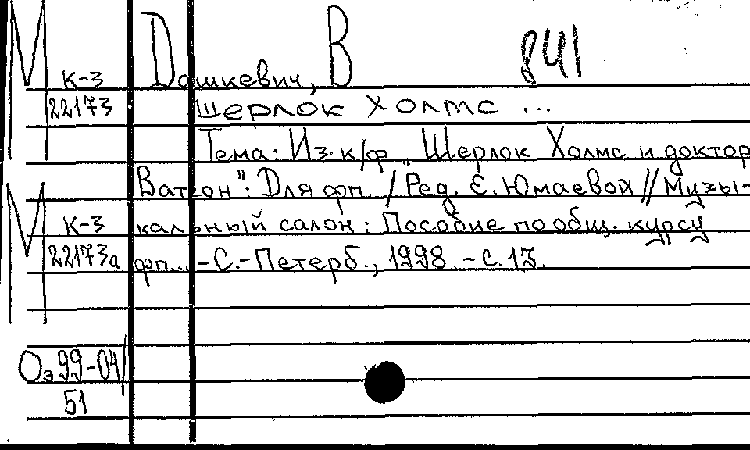 М Дашкевич, В 841
К-3
22173 Шерлок Холмс ...
Тема: Из к/ф "Шерлок Холмс и доктор
Ватсон": Для фп. / Ред. Е. Юмаевой // Музы-
М К-3 кальный салон: Пособие по общ. курсу
22173а фп... -С.-Петерб., 1998 -с. 17.
Оз 99-04/
51